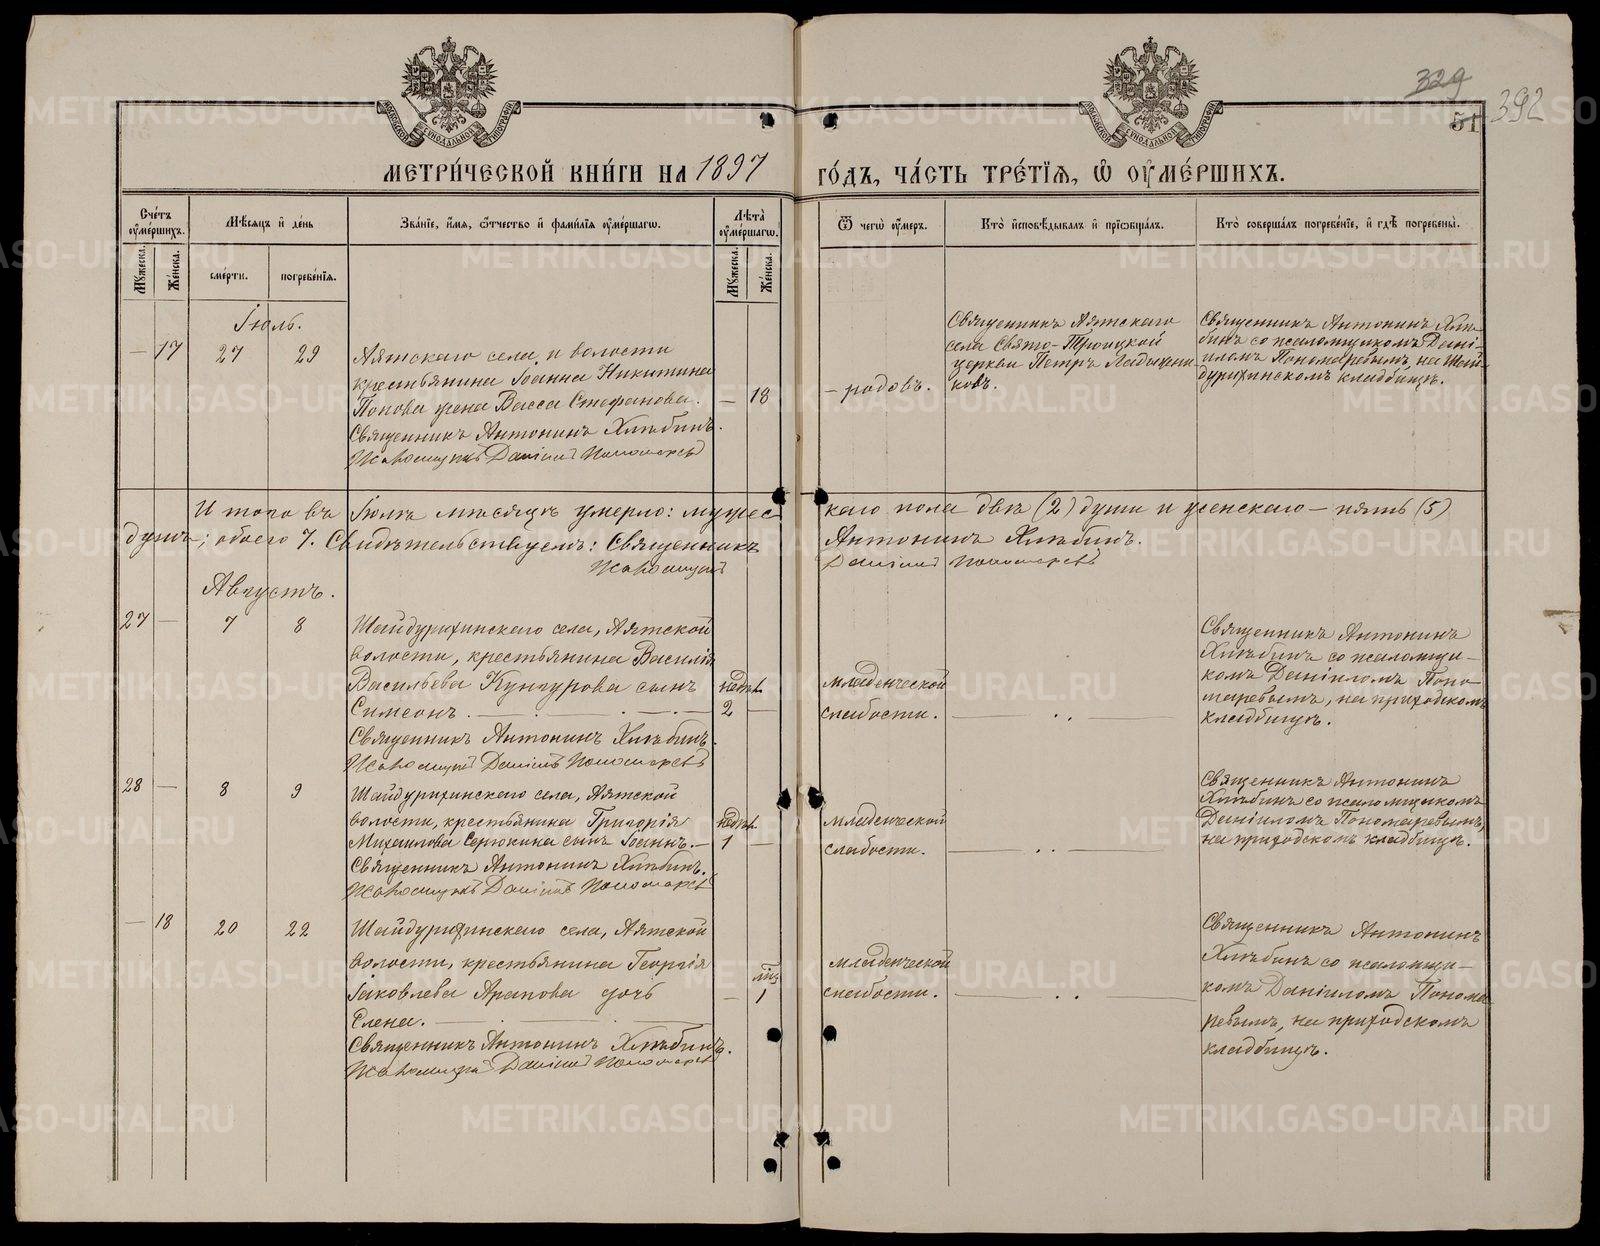 329
392
51
МЕТРИ́ЧЕСКОЙ КНИ́ГИ НА 1897 ГО́ДЪ, ЧА́СТЬ ТРЕ́ТІѦ, Ѡ҆ ОУ҆МЕ́РШИХЪ.
Сче́тъ оу҆ме́ршихъ.
Мѣ́сѧцъ и҆ де́нь
Зва́нїе, и҆́мѧ, ѻ҆́тчество и҆ фами́лїѧ оу҆ме́ршагѡ.
Лѣ́та оу҆ме́ршагѡ.
Ѿ чегѡ̀ оу҆́меръ.
Кто̀ и҆сповѣ́дывалъ и҆ прїѡбща́лъ.
Кто̀ соверша́лъ погребе́нїе, и҆ гдѣ̀ погребены̀.
Мꙋ́жеска.
Же́нска.
сме́рти.
погребе́нїѧ.
Мꙋ́жеска.
Же́нска.
Іюль.
— 17 27 29
Аятскаго села и волости
крестьянина Іоанна Никитина
Попова жена Васса Стефанова. — 18
Священникъ Антонинъ Хлѣбинъ.
Псаломщикъ Даніилъ Пономаревъ
— родовъ.
Священникъ Аятскаго
села Свято-Троицкой
церкви Петръ Ладыжни-
ковъ.
Священникъ Антонинъ Хлѣ-
бинъ со псаломщикомъ Дані-
иломъ Пономаревымъ, на Шай-
дурихинскомъ кладбищѣ.
Итого въ Іюлѣ мѣсяцѣ умерло: мужес каго пола двѣ (2) души и женскаго — пять (5)
душъ; обоего 7. Свидѣтельствуемъ: Священникъ Антонинъ Хлѣбинъ.
Псаломщикъ Даніилъ Пономаревъ
Августъ.
27 — 7 8
Шайдурихинскаго села, Аятской
волости, крестьянина Василія
Васильева Кунгурова сынъ недѣл.
Симеонъ. — 2 —
Священникъ Антонинъ Хлѣбинъ.
Псаломщикъ Даніилъ Пономаревъ
младенческой
слабости.
Священникъ Антонинъ
Хлѣбинъ со псаломщи-
комъ Даніиломъ Поно-
маревымъ, на приходскомъ
кладбищѣ.
28 — 8 9
Шайдурихинскаго села, Аятской
волости, крестьянина Григорія недѣл.
Михаилова Серюкина сынъ Іоаннъ. — 1 —
Священникъ Антонинъ Хлѣбинъ.
Псаломщикъ Даніилъ Пономаревъ
младенческой
слабости.
Священникъ Антонинъ
Хлѣбинъ со псаломщикомъ
Даніиломъ Пономаревымъ,
на приходскомъ кладбищѣ.
— 18 20 22
Шайдурихинскаго села, Аятской
волости, крестьянина Георгія
Іаковлева Арапова дочь — 1
Елена.
Священникъ Антонинъ Хлѣбинъ.
Псаломщикъ Даніилъ Пономаревъ
младенческой
слабости.
Священникъ Антонинъ
Хлѣбинъ со псаломщи-
комъ Даніиломъ Понома
ревымъ, на приходскомъ
кладбищѣ.
METRIKI.GASO-URAL.RU